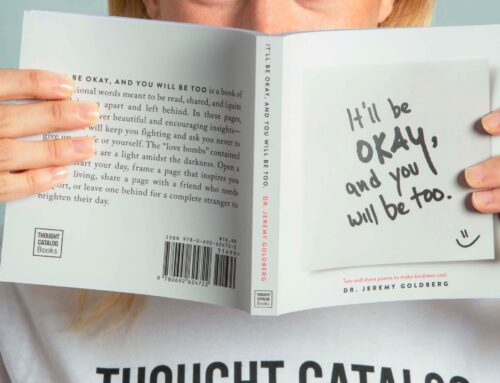 BE OKAY, AND YOU WILL BE TOO is a book of
tional words meant to be read, shared, and (quite
apart and left behind. In these pages,
ver beautiful and encouraging insights—
will keep you fighting and ask you never to
or yourself. The "love bombs" contained
are a light amidst the darkness. Open a
art your day, frame a page that inspires you
living, share a page with a friend who needs
port, or leave one behind for a complete stranger to
brighten their day.
THOUGHT
CATALOG
Books
ISBN 978-0-692-62472-2
9 780692 624722
IT'LL BE OKAY, AND YOU WILL BE TOO. DR. JEREMY GOLDBERG
THOUGHT
CATALOG
Books
It'll be
OKAY,
and you
will be too.
Tear and share poems to make kindness cool
DR. JEREMY GOLDBERG
THOUGHT CATALOG